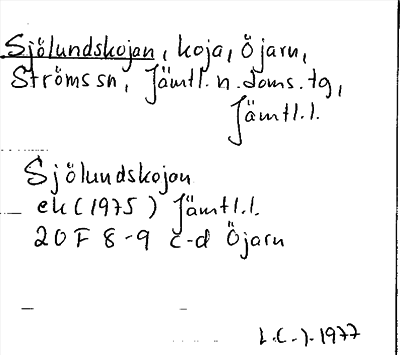 Sjölundskojan, koja, Öjarn,
Ströms sn, Jämtl. n. doms. tg,
Jämtl.l.
Sjölundskojan
ek (1975) Jämtl.l.
20 F 8-9 c-d Öjarn
1977